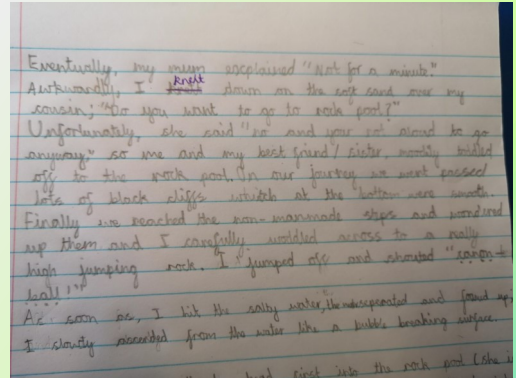 Eventually, my mum explained "Not for a minute."
Awkwardly, I knelt down on the soft sand over my
cousin; "Do you want to go to rock pool?"
Unfortunately, she said "no and your not aloud to go
anyway," so me and my best friend / sister, moodily
off to the rock pool. On our journey we went passed
lots of black cliffs whitch at the bottom were smooth.
Finally we reached the non-manmade steps and
up them and I carefully waddled across to a really
high jumping rock. I jumped off and shouted "canon
ball!"
As soon as, I hit the salty water, and
I slowly from the water like a bubble breaking surface.
first into the rock pool (she